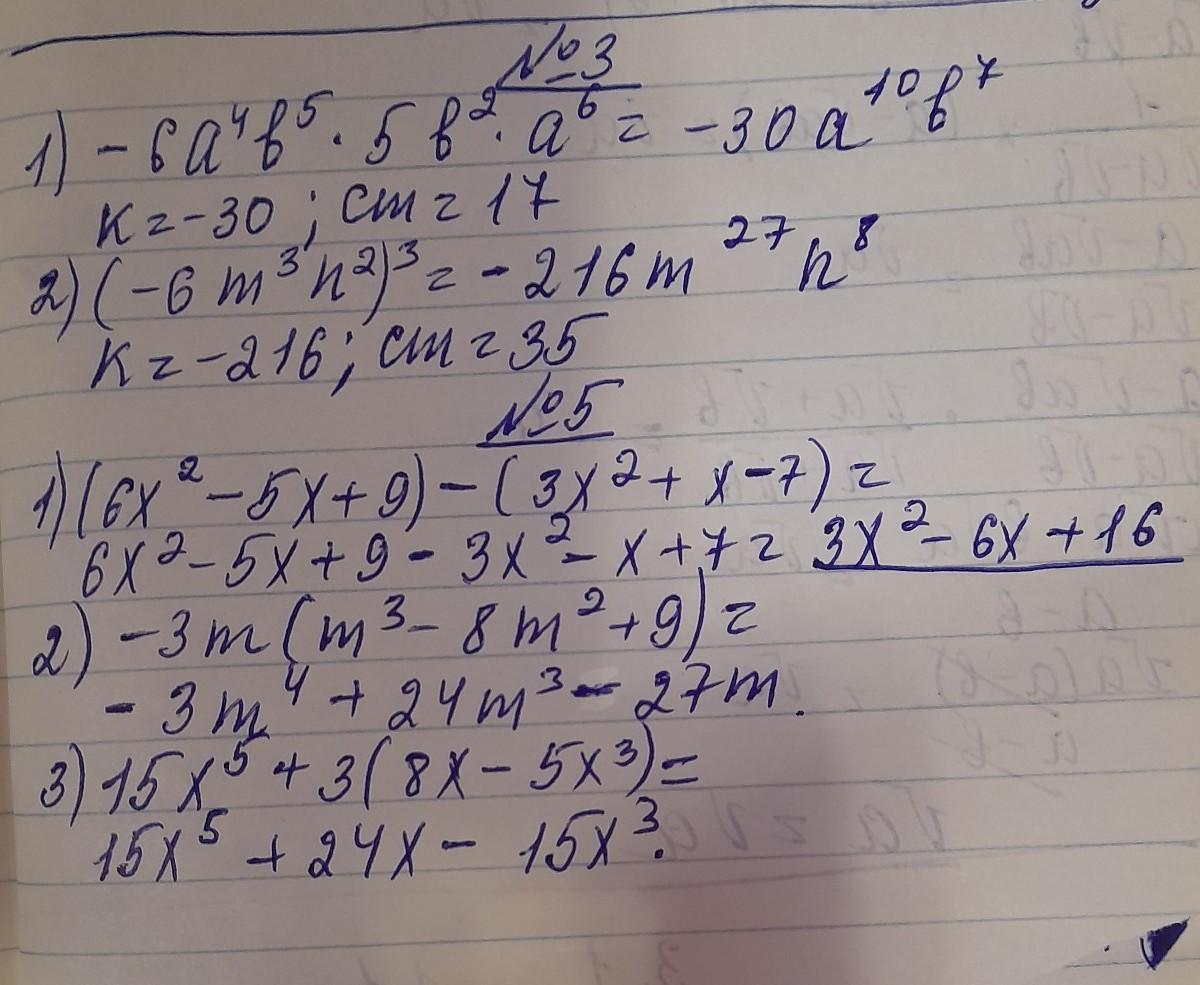 №3
1) -6a⁴b⁵ · 5b² · a⁶ = -30a¹⁰b⁷
к = -30 ; ст = 17
2) (-6m³n²)³ = -216m²⁷n⁸
к = -216 ; ст = 35
№5
1) (6x² - 5x + 9) - (3x² + x - 7) =
6x² - 5x + 9 - 3x² - x + 7 = 3x² - 6x + 16
2) -3m(m³ - 8m² + 9) =
-3m⁴ + 24m³ - 27m.
3) 15x⁵ + 3(8x - 5x³) =
15x⁵ + 24x - 15x³.